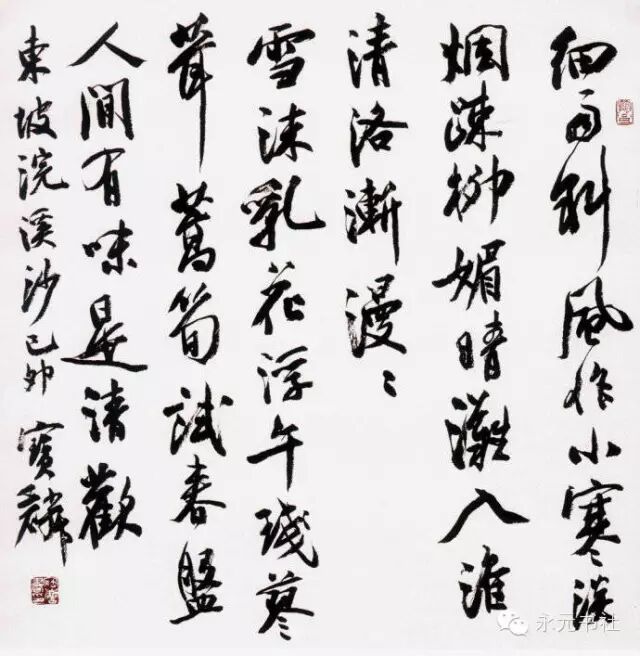 細雨斜風作小寒淡
烟疎柳媚晴灘入淮
清洛漸漫〻
雪沫乳花浮午琖蓼
茸蒿筍試春盤
人間有味是清歡
東坡浣溪沙己卯寶麟
永元书社